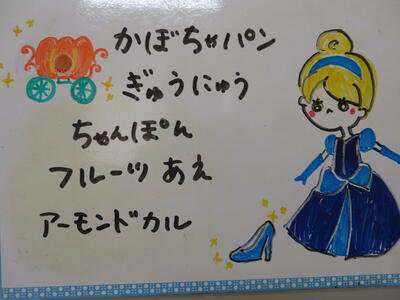 かぼちゃパン
ぎゅうにゅう
ちゃんぽん
フルーツ あえ
アーモンドカル